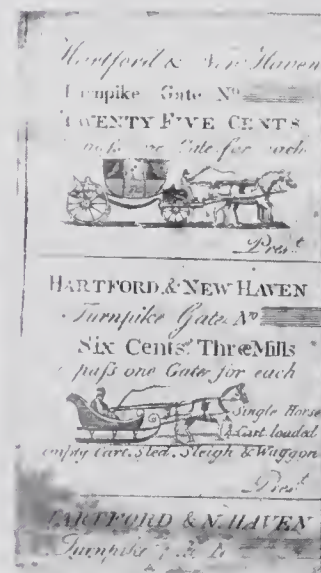 Hartford & New Haven
Turnpike Gate No
TWENTY FIVE CENTS
one Gate for each
Prest
HARTFORD & NEW HAVEN
Turnpike Gate No
Six Cents Three Mills
pass one Gate for each
Single Horse
Cart loaded
empty Cart, Sled, Sleigh & Waggon
Prest
HARTFORD & N. HAVEN
Turnpike